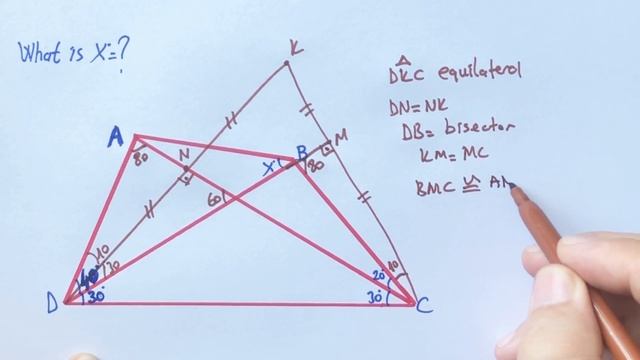 What is X°=?
K
DKC equilateral
DN=NK
DB= bisector
KM=MC
BMC ≅ AN
A
80
N
X°
B
M
80
60
10
40°
30
D
30°
10
20°
30°
C